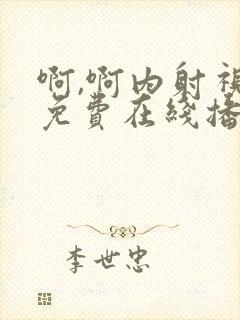 啊,啊内射裸
免费在线播
李世忠